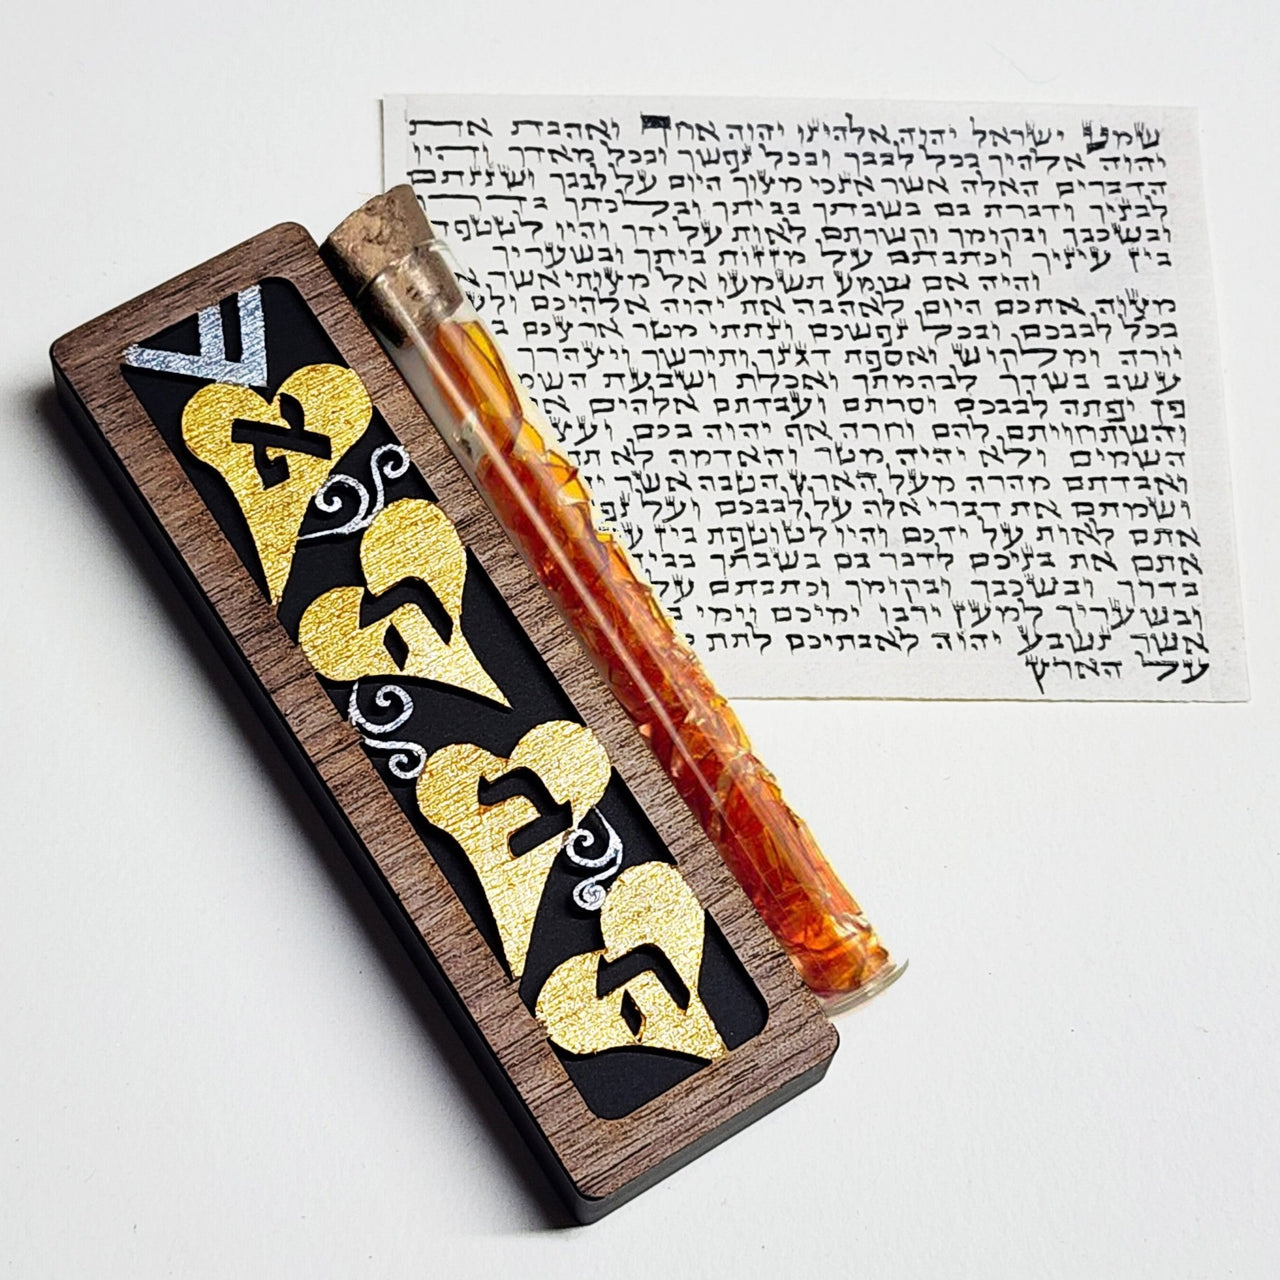 ש
א
ה
ב
ה
שמע ישראל יהוה אלהינו יהוה אחד ואהבת את
יהוה אלהיך בכל לבבך ובכל נפשך ובכל מאדך והיו
הדברים האלה אשר אנכי מצוך היום על לבבך ושננתם
לבניך ודברת בם בשבתך בביתך ובלכתך בדרך
ובשכבך ובקומך וקשרתם לאות על ידך והיו לטטפת
בין עיניך וכתבתם על מזזות ביתך ובשעריך
והיה אם שמע תשמעו אל מצותי אשר
מצוה אתכם היום לאהבה את יהוה אלהיכם
בכל לבבכם ובכל נפשכם ונתתי מטר ארצכם
יורה ומלקוש ואספת דגנך ותירשך ויצהרך
עשב בשדך לבהמתך ואכלת ושבעת
פן יפתה לבבכם וסרתם ועבדתם אלהים
והשתחויתם להם וחרה אף יהוה בכם
השמים ולא יהיה מטר והאדמה לא
ואבדתם מהרה מעל הארץ הטבה אשר
ושמתם את דברי אלה על לבבכם ועל
אתם לאות על ידכם והיו לטוטפת בין
אתם את בניכם לדבר בם בשבתך
בדרך ובשכבך ובקומך וכתבתם
ובשעריך למען ירבו ימיכם וימי
אשר נשבע יהוה לאבתיכם לתת
על הארץ